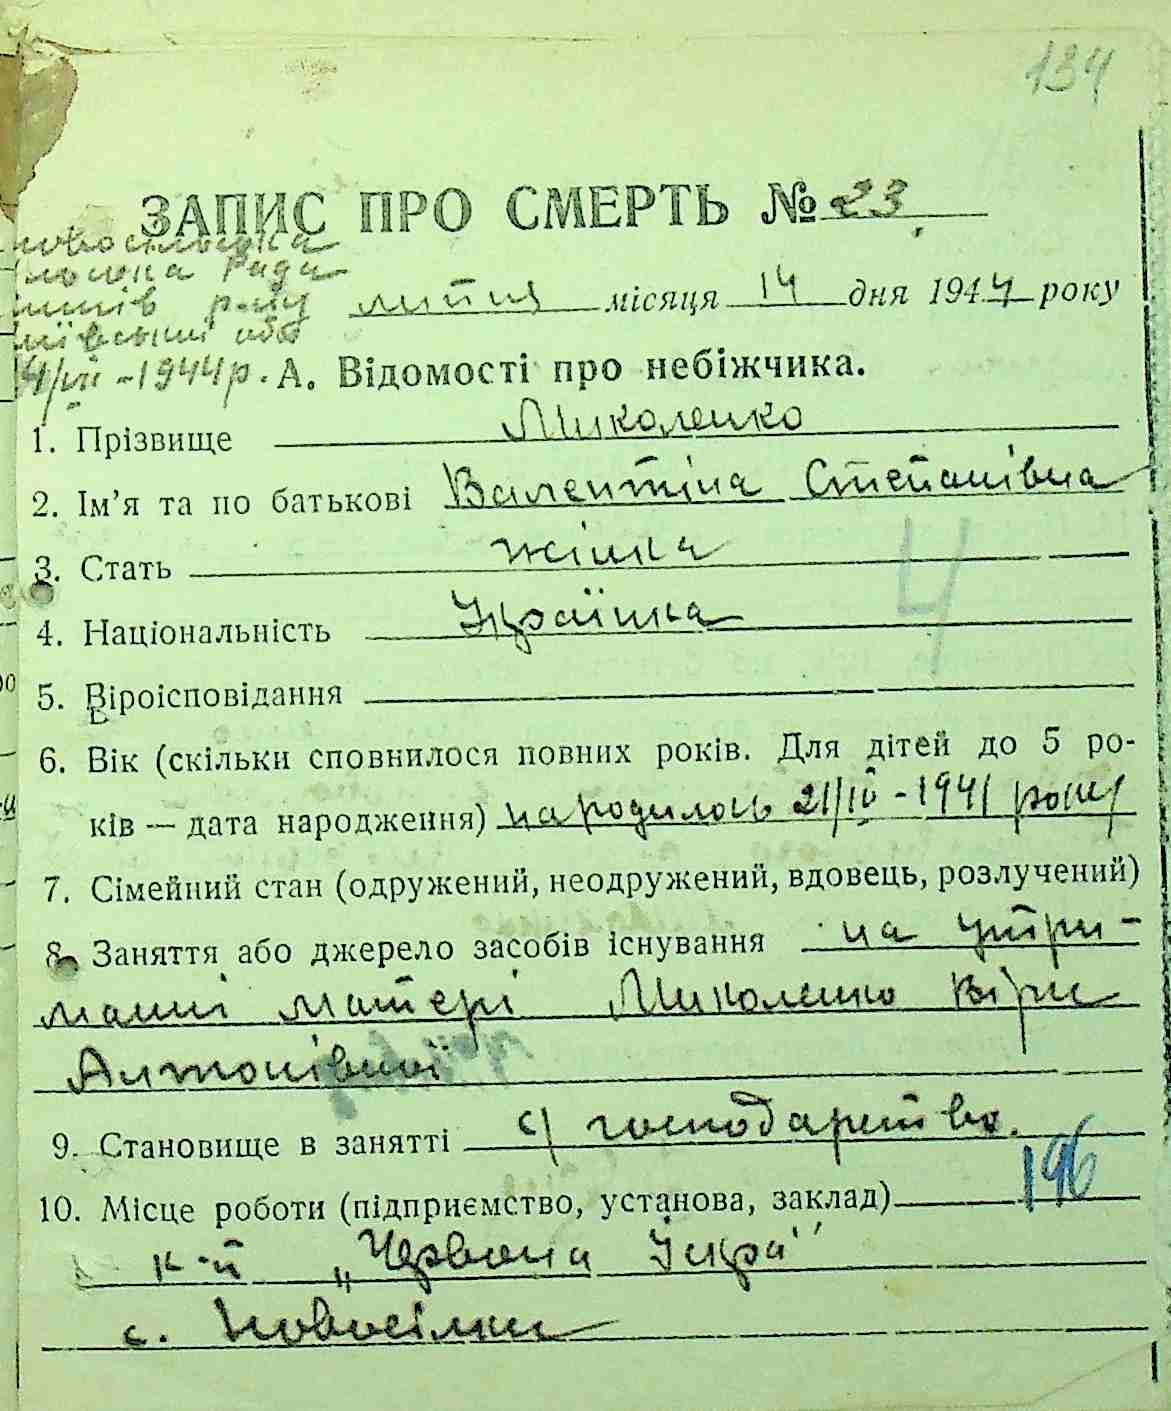 134
ЗАПИС ПРО СМЕРТЬ № 23
рада
липця місяця 14 дня 1944 року
1944 р. А. Відомості про небіжчика.
1. Прізвище Миколенко
2. Ім'я та по батькові Валентіна Степанівна
3. Стать жінка
4. Національність Українка
5. Віроісповідання
6. Вік (скільки сповнилося повних років. Для дітей до 5 ро-
ків — дата народження) народилась 21/IV - 1941 року
7. Сімейний стан (одружений, неодружений, вдовець, розлучений)
8. Заняття або джерело засобів існування на утри-
манні матері Миколенко Віри
Антонівної
9. Становище в занятті с/господарство.
10. Місце роботи (підприємство, установа, заклад) 196
к-п „Червона Іскра"
с. Новосілки